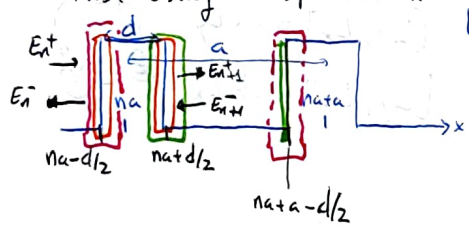 d
En+
a
En+1+
En-
na
En+1-
na+a
x
na-d/2
na+d/2
na+a-d/2